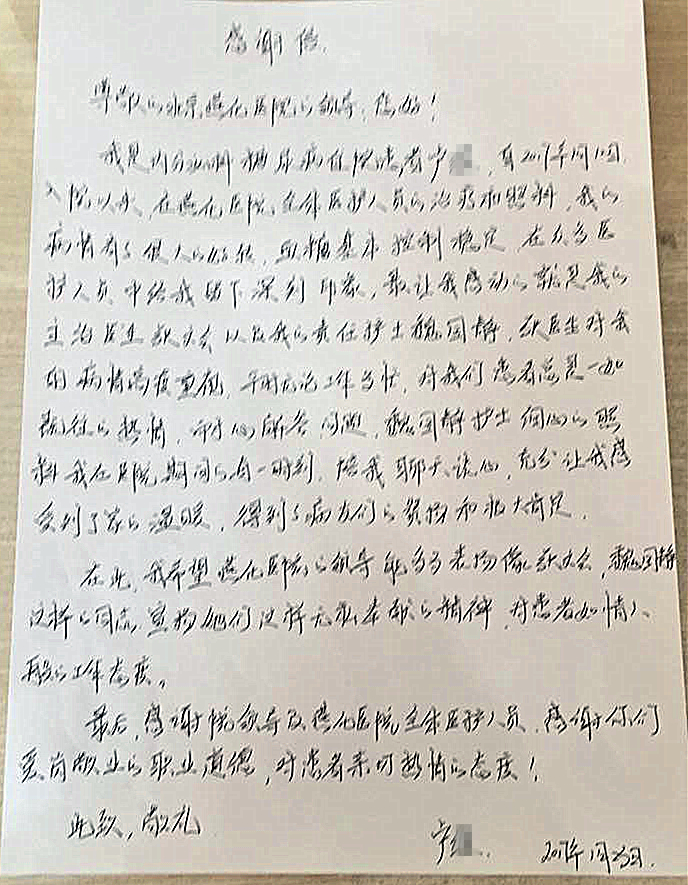 感谢信
尊敬的北京燕化医院的领导，您好！
我是内分泌科糖尿病住院患者宁，自2017年1月10日
入院以来，在燕化医院全体医护人员的治疗和照料，我的
病情有了很大的好转，血糖基本控制稳定，在众多医
护人员中给我留下深刻印象，最让我感动的就是我的
主治医生耿大会以及我的责任护士魏国静，耿医生对我
的病情高度重视，平时无论工作多忙，对我们患者总是一如
既往的热情，耐心解答问题，魏国静护士细心的照
料我在医院期间的每一时刻，陪我聊天谈心，充分让我感
受到了家的温暖，得到了病友们的赞扬和极大肯定。
在此，我希望燕化医院的领导能多多表扬像耿大会，魏国静
这样的同志，宣扬她们这样无私奉献的精神，对患者如情人、
的工作态度。
最后，感谢院领导及燕化医院全体医护人员，感谢你们
爱岗敬业的职业道德，对患者亲切热情的态度！
此致，敬礼
宁
2017年1月23日